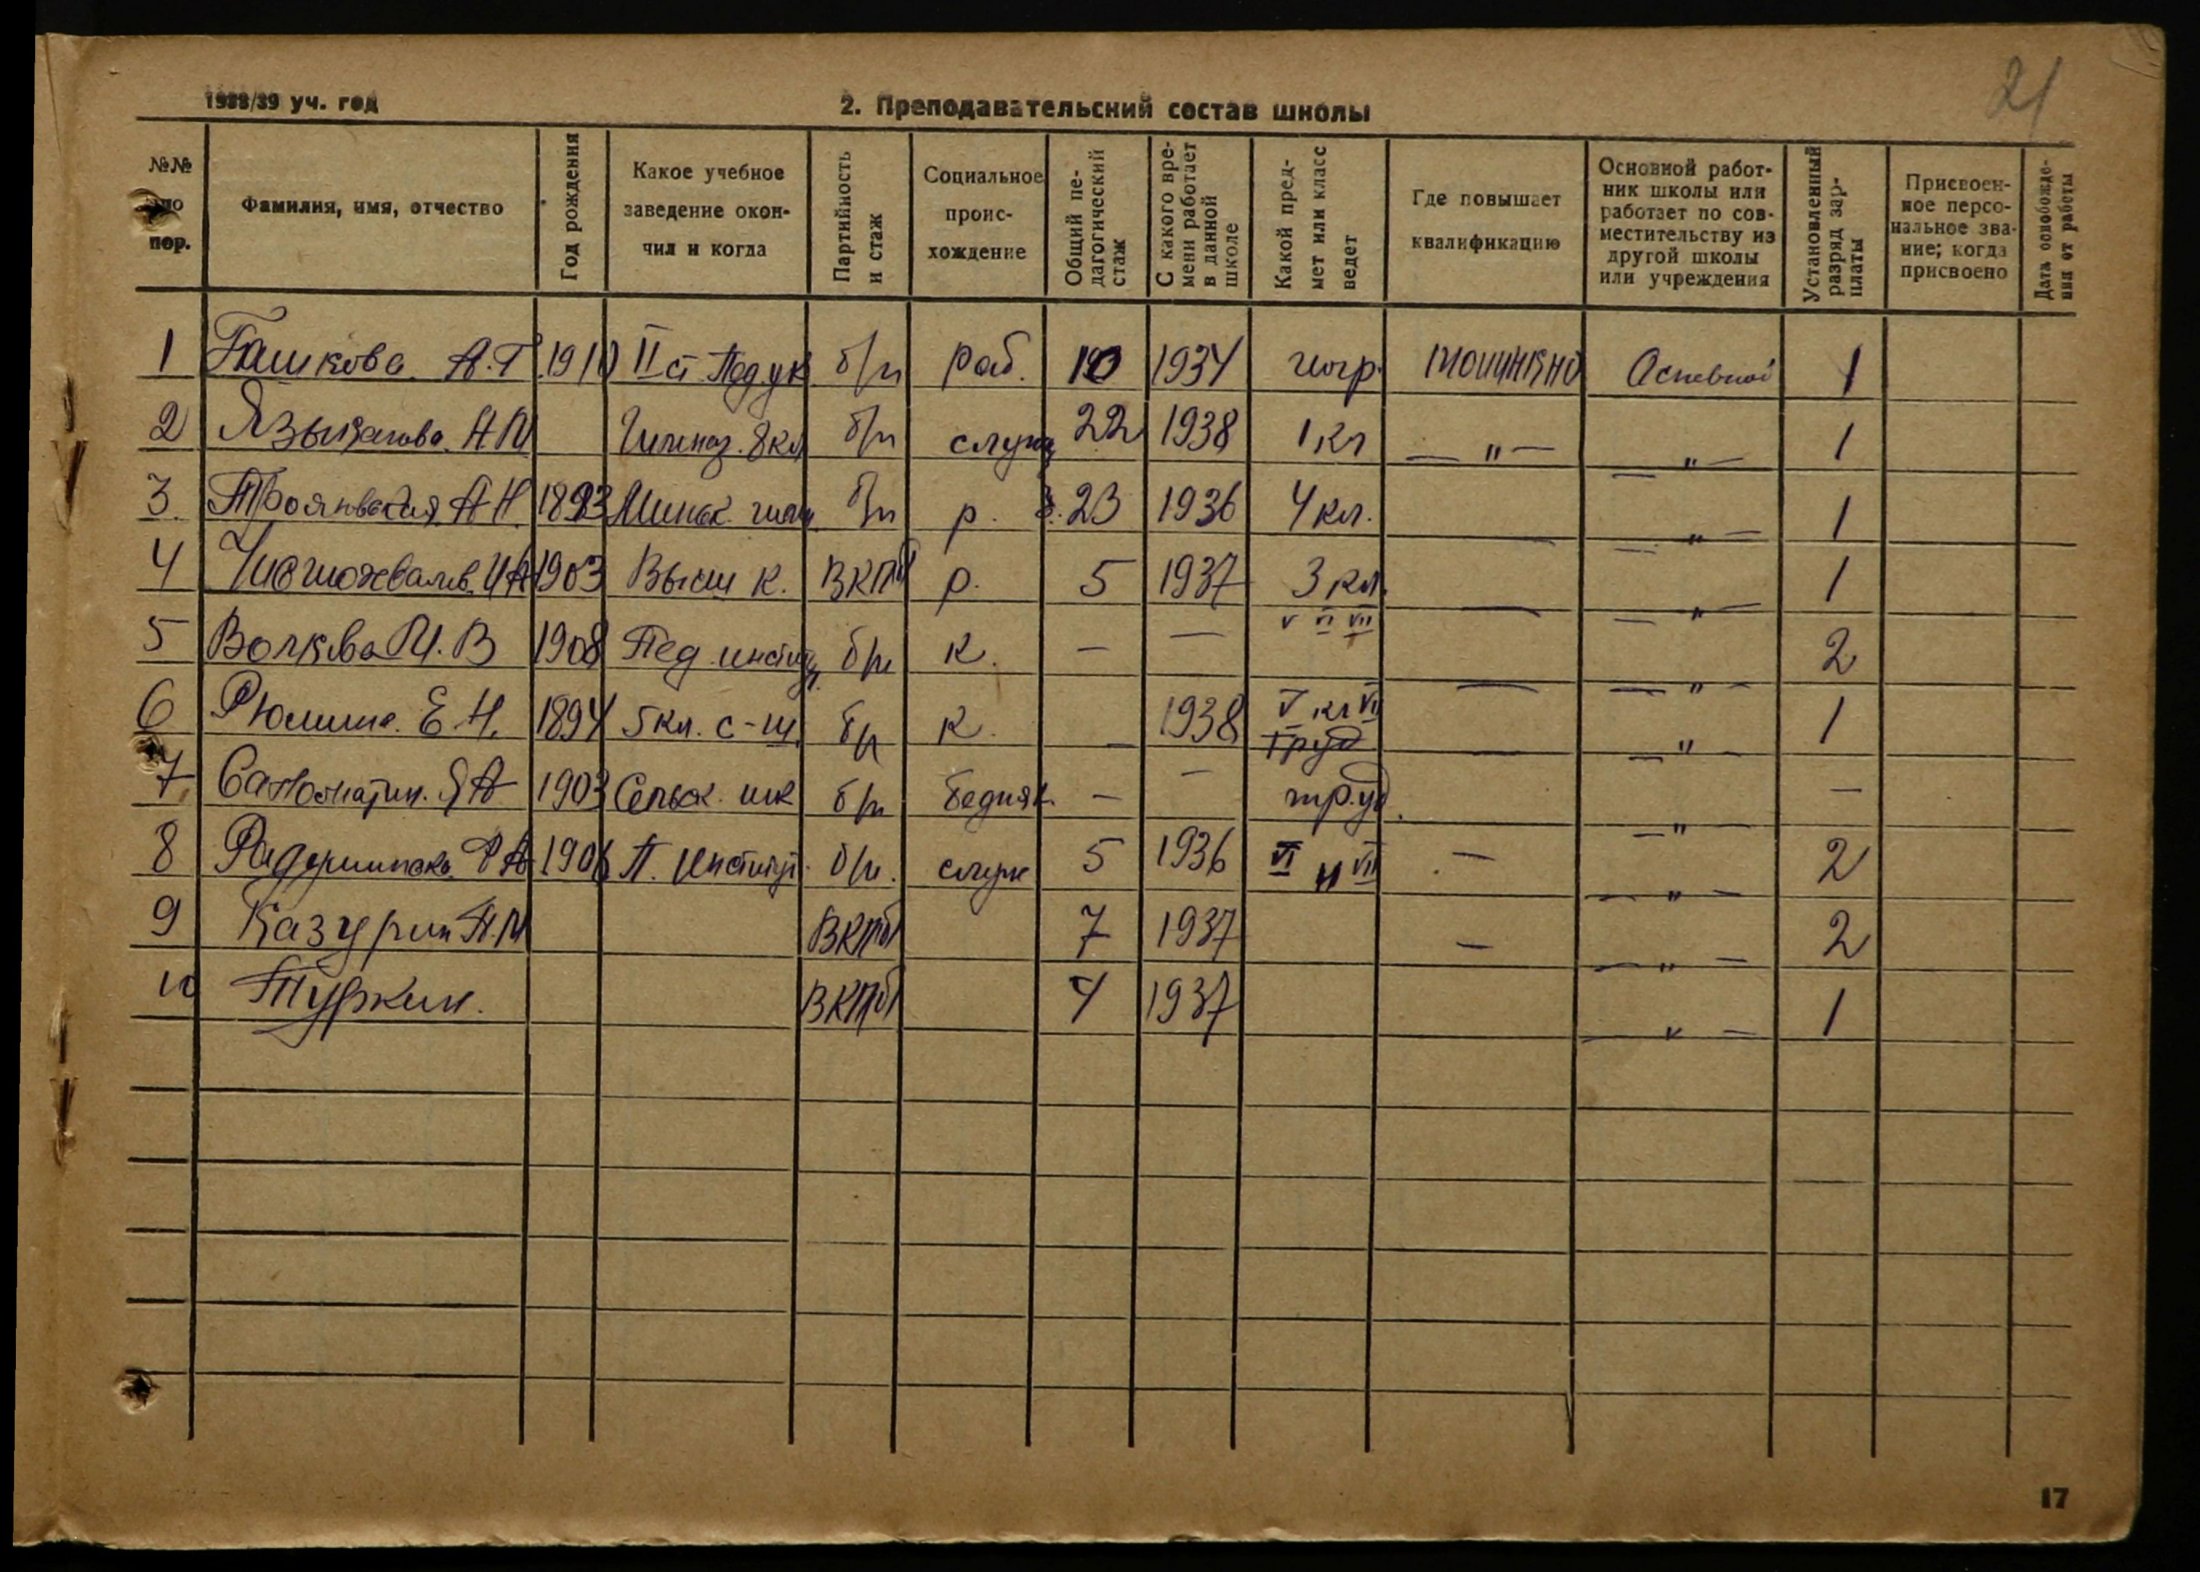 1938/39 уч. год
2. Преподавательский состав школы
21
№№ по пор.
Фамилия, имя, отчество
Год рождения
Какое учебное заведение окончил и когда
Партийность и стаж
Социальное происхождение
Общий педагогический стаж
С какого времени работает в данной школе
Какой предмет или класс ведет
Где повышает квалификацию
Основной работник школы или работает по совместительству из другой школы или учреждения
Установленный разряд зарплаты
Присвоенное персональное звание; когда присвоено
Дата освобождения от работы
1 Башкова А.Г. 1910 II ст. Пед. ук б/п раб. 10 1934 геогр. Основной 1
2 А П Гимназ. 8 кл б/п служ 22 1938 1 кл — " — — " — 1
3. Трояновская А Н. 1893 Минск. гим б/п р. 23 1936 4 кл. — — " — 1
4 1903 Высш К. ВКПб р. 5 1937 3 кл. — — " — 1
5 Волкова И. В 1908 Пед. инстит б/п к. — — V VI VII — — " — 2
6 Рюмина Е. Н. 1894 5 кл. с-ш. б/п к. — 1938 V кл VI труд — — " — 1
7 1903 Сельск. шк б/п бедняк — — труд — " — —
8 1906 П. Институт б/п. служ 5 1936 VI и VII — — " — 2
9 Казурин П.М ВКПб 7 1937 — — " — 2
10 Туркин. ВКПб 4 1937 — " — 1
17